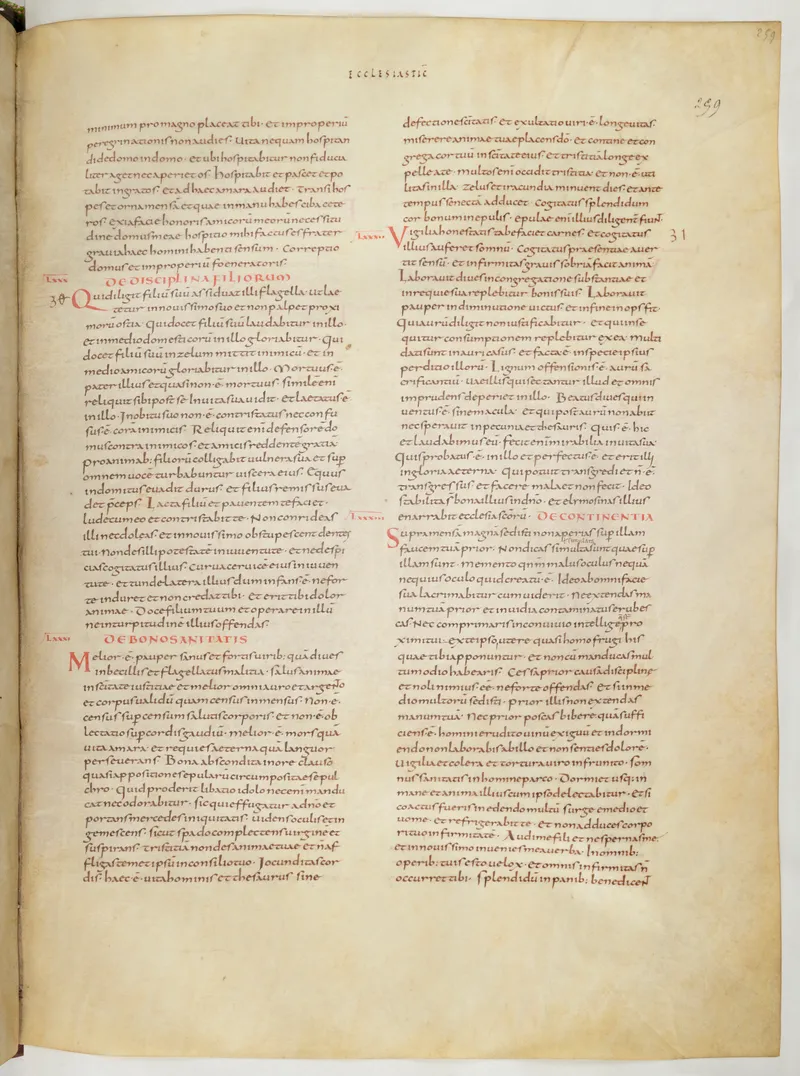 259
ECCLESIASTIC̄
299
minimum pro magno placeat tibi · et improperiū
peregrinationis non audies · Uita nequam hospitan
di de domo in domo · et ubi hospitabitur non fiducia
liter aget nec aperiet os · hospitabit et pascet et po
tabit ingratos · et ad haec amara audiet · Transi hos
pes et orna mensā et quae in manu habes ciba cete
ros · exi a facie honoris amicorū meorū necessitu
dine domus meae hospitio mihi factus est frater
grauia haec homini habenti sensum · Correptio
domus et improperiū foeneratoris ·
LXXX
DE DISCIPLINA FILIORUM
30
Qui diligit filiū suū assiduat illi flagella · ut lae
tetur in nouissimo suo et non palpet proxi
morū ostia · Qui docet filiū suū laudabitur in illo ·
et in medio domesticorū in illo gloriabitur · Qui
docet filiū suū in zelum mittit inimicū · et in
medio amicorū gloriabitur in illo · Mortuus · ē ·
pater illius et quasi non · ē · mortuus · similē eni
reliquit sibi post se · In uita sua uidit · et laetatus · ē
in illo · In obitu suo non · ē · contristatus nec confu
sus · ē · corā inimicis · Reliquit eni defensorē do
mus contra inimicos · et amicis reddentē gratiā ·
pro animab; filiorū colligabit uulnera sua et sup
omnem uocē turbabuntur uiscera eius · Equus
indomitus euadit durus · et filius remissus eua
det p̄ceps · Lacta filiū et pauentem te faciet ·
lude cum eo et contristabit te · Non conrideas
illi ne doleas · et in nouissimo obstupescent dentes
tui · Non des illi potestatē in iuuentute · et ne despi
cias cogitatus illius · Curua ceruicē eius in iuuen
tute · et tunde latera illius dum infans · ē · ne for
te induret et non credat tibi · et erit tibi dolor
animae · Doce filium tuum et operare in illū
ne in turpitudinē illius offendas ·
LXXXI
DE BONO SANITATIS
Melior · ē · pauper sanus et fortis uirib; quā diues
inbecillis et flagellatus malitia · salus animae
in scītate iustitiae et melior omni auro et argento
et corpus ualidū quam census inmensus · Non · ē ·
census sup censum salutis corporis et non · ē · ob
lectatio sup cordis gaudiū · melior · ē · mors quā
uita amara · et requies aeterna quā languor
perseuerans · Bona abscondita in ore clauso
quasi appositiones epularū circumpositae sepul
chro · quid proderit libatio idolo nec eni mandu
cat nec odorabitur · sic qui effugatur a dn̄o et
portans mercedes iniquitatis · uidens oculis et in
gemescens · sicut spado complectens uirginē et
suspirans · Tristitiā non des animae tuae et n̄ af
fligas temet ipsū in consilio tuo · Jocunditas cor
dis · haec · ē · uita hominis et thesaurus sine
defectione scītatis · et exultatio uiri · ē · longeuitas ·
miserere animae tuae placens dō · et contine et con
grega cor tuū in scītate eius · et tristitiā longe ex
pelle a te · multos eni occidit tristitia · et non · ē · uti
litas in illa · zelus et iracundia minuent dies · et ante
tempus senectā adducet · Cogitatus splendidum
cor bonum in epulis · epulae eni illius diligent fiunt
LXXXII
Vigilia honestatis tabefaciet carnes · et cogitatus
31
illius auferet somnū · Cogitatus praesentiae auer
tit sensū · et infirmitas grauis sobriā facit animā ·
Laborauit diues in congregatione substantiae et
in requie sua replebitur bonis suis · Laborauit
pauper in diminutione uictus · et in fine inops fit ·
Qui aurū diligit non iustificabitur · et qui inse
quitur consumptionem replebitur ex ea · multi
dati sunt in auri casus · et facta · ē · in specie ipsius
perditio illorū · Lignum offensionis · ē · aurū sa
crificantiū · Uae illis qui sectantur illud et omnis
imprudens deperiet in illo · Beatus diues qui in
uentus · ē · sine macula · et qui post aurū non abiit
nec sperauit in pecunia et thesauris · Quis · ē · hic
et laudabimus eū · fecit eni mirabilia in uita sua ·
Qui probatus · ē · in illo et perfectus · ē · et erit illi
in gloria aeterna · Qui potuit transgredi et n̄ · ē ·
transgressus · et facere mala et non fecit · Ideo
stabilita s bona illius in dn̄o · et elemosinas illius
enarrabit ecclesia scōrū ·
DE CONTINENTIA
Supra mensā magnā sedisti non aperias sup illam
faucem tuā prior · Non dicas si multa sunt quae sup
illam sunt · memento qnm malus oculus nequā
nequius oculo quid creatū · ē · Ideo ab omni facie
sua lacrimabitur cum uiderit · Ne extendas ma
num tuā prior et inuidia contaminatus erubes
cas · Nec comprimaris in conuiuio intellige pro
ximi tui · ex te ipso, utere quasi homo frugi his
quae tibi apponuntur · et non cū manducas mul
tum odio habearis · Cessa prior causa disciplinę
et noli nimius eē · ne forte offendas · et si in me
dio multorū sedisti · prior illis non extendas
manum tuā · Nec prior poscas bibere · quā suffi
ciens · ē · homini erudito uinū exiguū et in dormi
endo non laborabis ab illo et non senties dolorē ·
Uigilia et colera et tortura uiro infrunito · som
nus sanitatis in homine parco · Dormiet usq; in
mane et anima illius cum ipso delectabitur · et si
coactus fueris in edendo multū surge e medio et
uome · et refrigerabit te · et non adduces corpo
ri tuo infirmitatē · Audi me fili et ne spernas me ·
et in nouissimo inuenies mea uerba · In omnib;
operib; tuis esto uelox · et omnis infirmitas n̄
occurret tibi · Splendidū in panib; benedicent